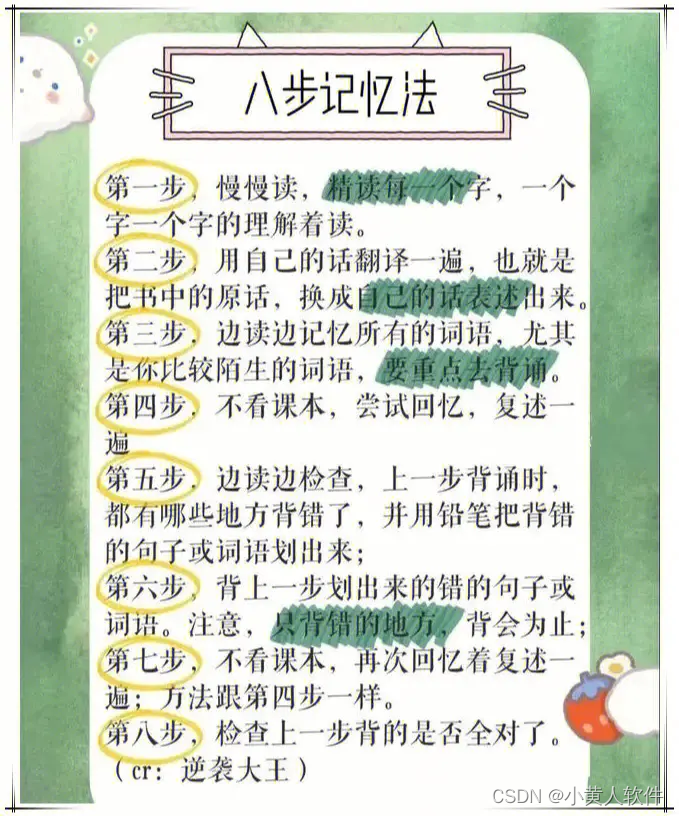 八步记忆法
第一步，慢慢读，精读每一个字，一个
字一个字的理解着读。
第二步，用自己的话翻译一遍，也就是
把书中的原话，换成自己的话表述出来。
第三步，边读边记忆所有的词语，尤其
是你比较陌生的词语，要重点去背诵。
第四步，不看课本，尝试回忆，复述一
遍
第五步，边读边检查，上一步背诵时，
都有哪些地方背错了，并用铅笔把背错
的句子或词语划出来；
第六步，背上一步划出来的错的句子或
词语。注意，只背错的地方，背会为止；
第七步，不看课本，再次回忆着复述一
遍；方法跟第四步一样。
第八步，检查上一步背的是否全对了。
（cr：逆袭大王）
CSDN @小黄人软件